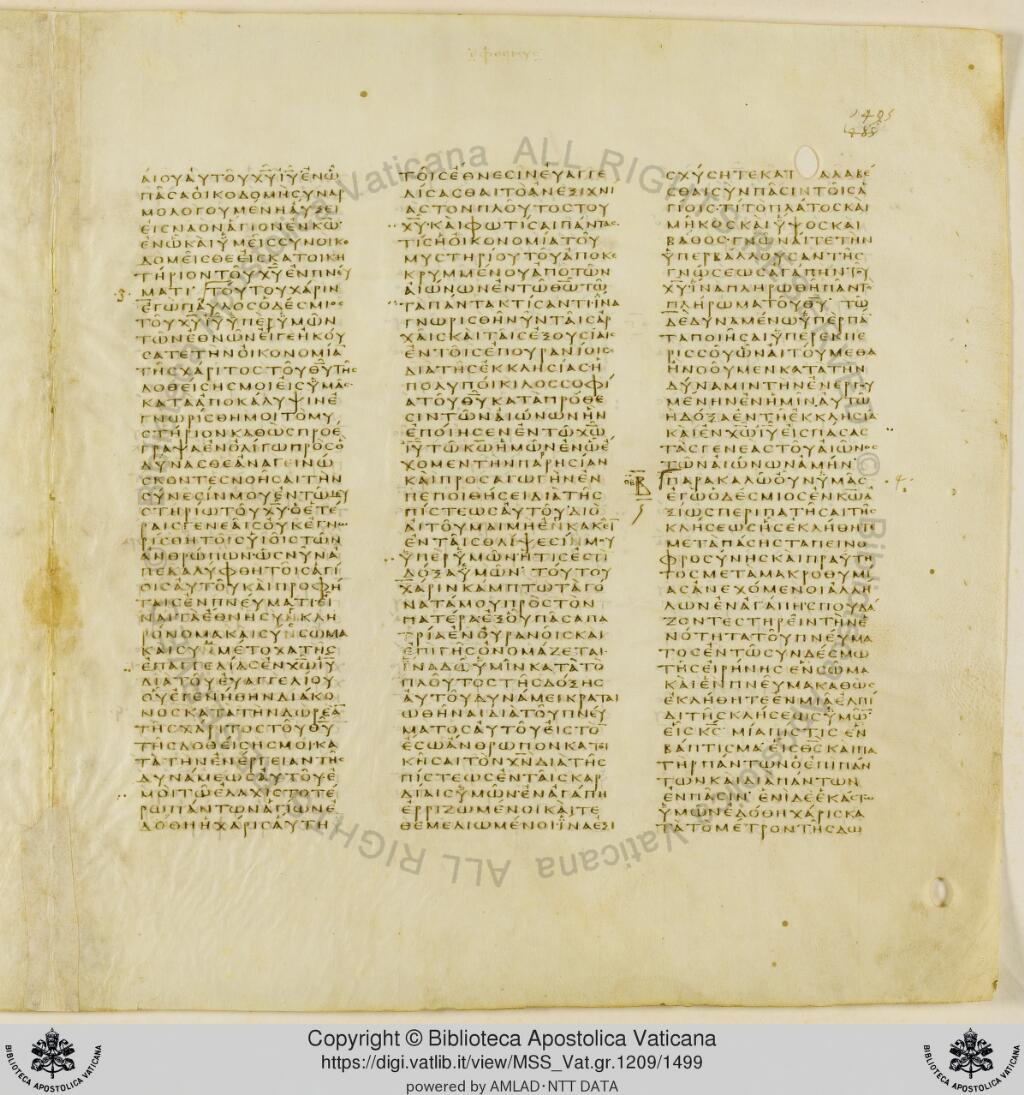 ΕΦΕΣΙΟΥΣ
1495
ΑΙΟΥΑΥΤΟΥΧΥΙΥΕΝΩ
ΠΑΣΑΟΙΚΟΔΟΜΗΣΥΝΑΡ
ΜΟΛΟΓΟΥΜΕΝΗΑΥΞΕΙ
ΕΙΣΝΑΟΝΑΓΙΟΝΕΝΚΩ
ΕΝΩΚΑΙΥΜΕΙΣΣΥΝΟΙΚΟ
ΔΟΜΕΙΣΘΕΕΙΣΚΑΤΟΙΚΗ
ΤΗΡΙΟΝΤΟΥΧΥΕΝΠΝΕΥ
ΜΑΤΙ ΤΟΥΤΟΥΧΑΡΙΝ
ΕΓΩΠΑΥΛΟΣΟΔΕΣΜΙΟΣ
ΤΟΥΧΥΙΥΥΠΕΡΥΜΩΝ
ΤΩΝΕΘΝΩΝΕΙΓΕΗΚΟΥ
ΣΑΤΕΤΗΝΟΙΚΟΝΟΜΙΑ
ΤΗΣΧΑΡΙΤΟΣΤΟΥΘΥΤΗΣ
ΔΟΘΕΙΣΗΣΜΟΙΕΙΣΥΜΑΣ
ΚΑΤΑΑΠΟΚΑΛΥΨΙΝΕ
ΓΝΩΡΙΣΘΗΜΟΙΤΟΜΥ
ΣΤΗΡΙΟΝΚΑΘΩΣΠΡΟΕ
ΓΡΑΨΑΕΝΟΛΙΓΩΠΡΟΣΟ
ΔΥΝΑΣΘΕΑΝΑΓΕΙΝΩ
ΣΚΟΝΤΕΣΝΟΗΣΑΙΤΗΝ
ΣΥΝΕΣΙΝΜΟΥΕΝΤΩΜΥ
ΣΤΗΡΙΩΤΟΥΧΥΟΕΤΕ
ΡΑΙΣΓΕΝΕΑΙΣΟΥΚΕΓΝΩ
ΡΙΣΘΗΤΟΙΣΥΙΟΙΣΤΩΝ
ΑΝΘΡΩΠΩΝΩΣΝΥΝΑ
ΠΕΚΑΛΥΦΘΗΤΟΙΣΑΓΙ
ΟΙΣΑΥΤΟΥΚΑΙΠΡΟΦΗ
ΤΑΙΣΕΝΠΝΕΥΜΑΤΙΕΙ
ΝΑΙΤΑΕΘΝΗΣΥΝΚΛΗ
ΡΟΝΟΜΑΚΑΙΣΥΝΣΩΜΑ
ΚΑΙΣΥΝΜΕΤΟΧΑΤΗΣ
ΕΠΑΓΓΕΛΙΑΣΕΝΧΩΙΥ
ΔΙΑΤΟΥΕΥΑΓΓΕΛΙΟΥ
ΟΥΕΓΕΝΗΘΗΝΔΙΑΚΟ
ΝΟΣΚΑΤΑΤΗΝΔΩΡΕΑ
ΤΗΣΧΑΡΙΤΟΣΤΟΥΘΥ
ΤΗΣΔΟΘΕΙΣΗΣΜΟΙΚΑ
ΤΑΤΗΝΕΝΕΡΓΕΙΑΝΤΗΣ
ΔΥΝΑΜΕΩΣΑΥΤΟΥΕ
ΜΟΙΤΩΕΛΑΧΙΣΤΟΤΕ
ΡΩΠΑΝΤΩΝΑΓΙΩΝΕ
ΔΟΘΗΗΧΑΡΙΣΑΥΤΗ
ΤΟΙΣΕΘΝΕΣΙΝΕΥΑΓΓΕ
ΛΙΣΑΣΘΑΙΤΟΑΝΕΞΙΧΝΙ
ΑΣΤΟΝΠΛΟΥΤΟΣΤΟΥ
ΧΥΚΑΙΦΩΤΙΣΑΙΠΑΝΤΑΣ
ΤΙΣΗΟΙΚΟΝΟΜΙΑΤΟΥ
ΜΥΣΤΗΡΙΟΥΤΟΥΑΠΟΚΕ
ΚΡΥΜΜΕΝΟΥΑΠΟΤΩΝ
ΑΙΩΝΩΝΕΝΤΩΘΩΤΩ
ΤΑΠΑΝΤΑΚΤΙΣΑΝΤΙΙΝΑ
ΓΝΩΡΙΣΘΗΝΥΝΤΑΙΣΑΡ
ΧΑΙΣΚΑΙΤΑΙΣΕΞΟΥΣΙΑΙΣ
ΕΝΤΟΙΣΕΠΟΥΡΑΝΙΟΙΣ
ΔΙΑΤΗΣΕΚΚΛΗΣΙΑΣΗ
ΠΟΛΥΠΟΙΚΙΛΟΣΣΟΦΙ
ΑΤΟΥΘΥΚΑΤΑΠΡΟΘΕ
ΣΙΝΤΩΝΑΙΩΝΩΝΗΝ
ΕΠΟΙΗΣΕΝΕΝΤΩΧΩ
ΙΥΤΩΚΩΗΜΩΝΕΝΩΕ
ΧΟΜΕΝΤΗΝΠΑΡΗΣΙΑΝ
ΚΑΙΠΡΟΣΑΓΩΓΗΝΕΝ
ΠΕΠΟΙΘΗΣΕΙΔΙΑΤΗΣ
ΠΙΣΤΕΩΣΑΥΤΟΥΔΙΟ
ΑΙΤΟΥΜΑΙΜΗΕΝΚΑΚΕΙ
ΕΝΤΑΙΣΘΛΙΨΕΣΙΜΜΟΥ
ΥΠΕΡΥΜΩΝΗΤΙΣΕΣΤΙ
ΔΟΞΑΥΜΩΝ ΤΟΥΤΟΥ
ΧΑΡΙΝΚΑΜΠΤΩΤΑΓΟ
ΝΑΤΑΜΟΥΠΡΟΣΤΟΝ
ΠΑΤΕΡΑΕΞΟΥΠΑΣΑΠΑ
ΤΡΙΑΕΝΟΥΡΑΝΟΙΣΚΑΙ
ΕΠΙΓΗΣΟΝΟΜΑΖΕΤΑΙ
ΙΝΑΔΩΥΜΙΝΚΑΤΑΤΟ
ΠΛΟΥΤΟΣΤΗΣΔΟΞΗΣ
ΑΥΤΟΥΔΥΝΑΜΕΙΚΡΑΤΑΙ
ΩΘΗΝΑΙΔΙΑΤΟΥΠΝΕΥ
ΜΑΤΟΣΑΥΤΟΥΕΙΣΤΟ
ΕΣΩΑΝΘΡΩΠΟΝΚΑΤΟΙ
ΚΗΣΑΙΤΟΝΧΝΔΙΑΤΗΣ
ΠΙΣΤΕΩΣΕΝΤΑΙΣΚΑΡ
ΔΙΑΙΣΥΜΩΝΕΝΑΓΑΠΗ
ΕΡΡΙΖΩΜΕΝΟΙΚΑΙΤΕ
ΘΕΜΕΛΙΩΜΕΝΟΙΙΝΑΕΞΙ
ΣΧΥΣΗΤΕΚΑΤΑΛΑΒΕ
ΣΘΑΙΣΥΝΠΑΣΙΝΤΟΙΣΑ
ΓΙΟΙΣΤΙΤΟΠΛΑΤΟΣΚΑΙ
ΜΗΚΟΣΚΑΙΥΨΟΣΚΑΙ
ΒΑΘΟΣΓΝΩΝΑΙΤΕΤΗΝ
ΥΠΕΡΒΑΛΛΟΥΣΑΝΤΗΣ
ΓΝΩΣΕΩΣΑΓΑΠΗΝΤΟΥ
ΧΥΙΝΑΠΛΗΡΩΘΗΠΑΝΤΟ
ΠΛΗΡΩΜΑΤΟΥΘΥ ΤΩ
ΔΕΔΥΝΑΜΕΝΩΥΠΕΡΠΑ
ΤΑΠΟΙΗΣΑΙΥΠΕΡΕΚΠΕ
ΡΙΣΣΟΥΩΝΑΙΤΟΥΜΕΘΑ
ΗΝΟΟΥΜΕΝΚΑΤΑΤΗΝ
ΔΥΝΑΜΙΝΤΗΝΕΝΕΡΓΟΥ
ΜΕΝΗΝΕΝΗΜΙΝΑΥΤΩ
ΗΔΟΞΑΕΝΤΗΕΚΚΛΗΣΙΑ
ΚΑΙΕΝΧΩΙΥΕΙΣΠΑΣΑΣ
ΤΑΣΓΕΝΕΑΣΤΟΥΑΙΩΝΟΣ
ΤΩΝΑΙΩΝΩΝΑΜΗΝ
ΠΑΡΑΚΑΛΩΟΥΝΥΜΑΣ
ΕΓΩΟΔΕΣΜΙΟΣΕΝΚΩΑ
ΞΙΩΣΠΕΡΙΠΑΤΗΣΑΙΤΗΣ
ΚΛΗΣΕΩΣΗΣΕΚΛΗΘΗΤΕ
ΜΕΤΑΠΑΣΗΣΤΑΠΕΙΝΟ
ΦΡΟΣΥΝΗΣΚΑΙΠΡΑΥΤΗ
ΤΟΣΜΕΤΑΜΑΚΡΟΘΥΜΙ
ΑΣΑΝΕΧΟΜΕΝΟΙΑΛΛΗ
ΛΩΝΕΝΑΓΑΠΗΣΠΟΥΔΑ
ΖΟΝΤΕΣΤΗΡΕΙΝΤΗΝΕ
ΝΟΤΗΤΑΤΟΥΠΝΕΥΜΑ
ΤΟΣΕΝΤΩΣΥΝΔΕΣΜΩ
ΤΗΣΕΙΡΗΝΗΣΕΝΣΩΜΑ
ΚΑΙΕΝΠΝΕΥΜΑΚΑΘΩΣ
ΕΚΛΗΘΗΤΕΕΝΜΙΑΕΛΠΙ
ΔΙΤΗΣΚΛΗΣΕΩΣΥΜΩΝ
ΕΙΣΚΣ ΜΙΑΠΙΣΤΙΣΕΝ
ΒΑΠΤΙΣΜΑΕΙΣΘΣΚΑΙΠΑ
ΤΗΡΠΑΝΤΩΝΟΕΠΙΠΑΝ
ΤΩΝΚΑΙΔΙΑΠΑΝΤΩΝ
ΕΝΠΑΣΙΝ ΕΝΙΔΕΕΚΑΣΤΩ
ΥΜΩΝΕΔΟΘΗΧΑΡΙΣΚΑ
ΤΑΤΟΜΕΤΡΟΝΤΗΣΔΩ
Copyright © Biblioteca Apostolica Vaticana
https://digi.vatlib.it/view/MSS_Vat.gr.1209/1499
powered by AMLAD·NTT DATA